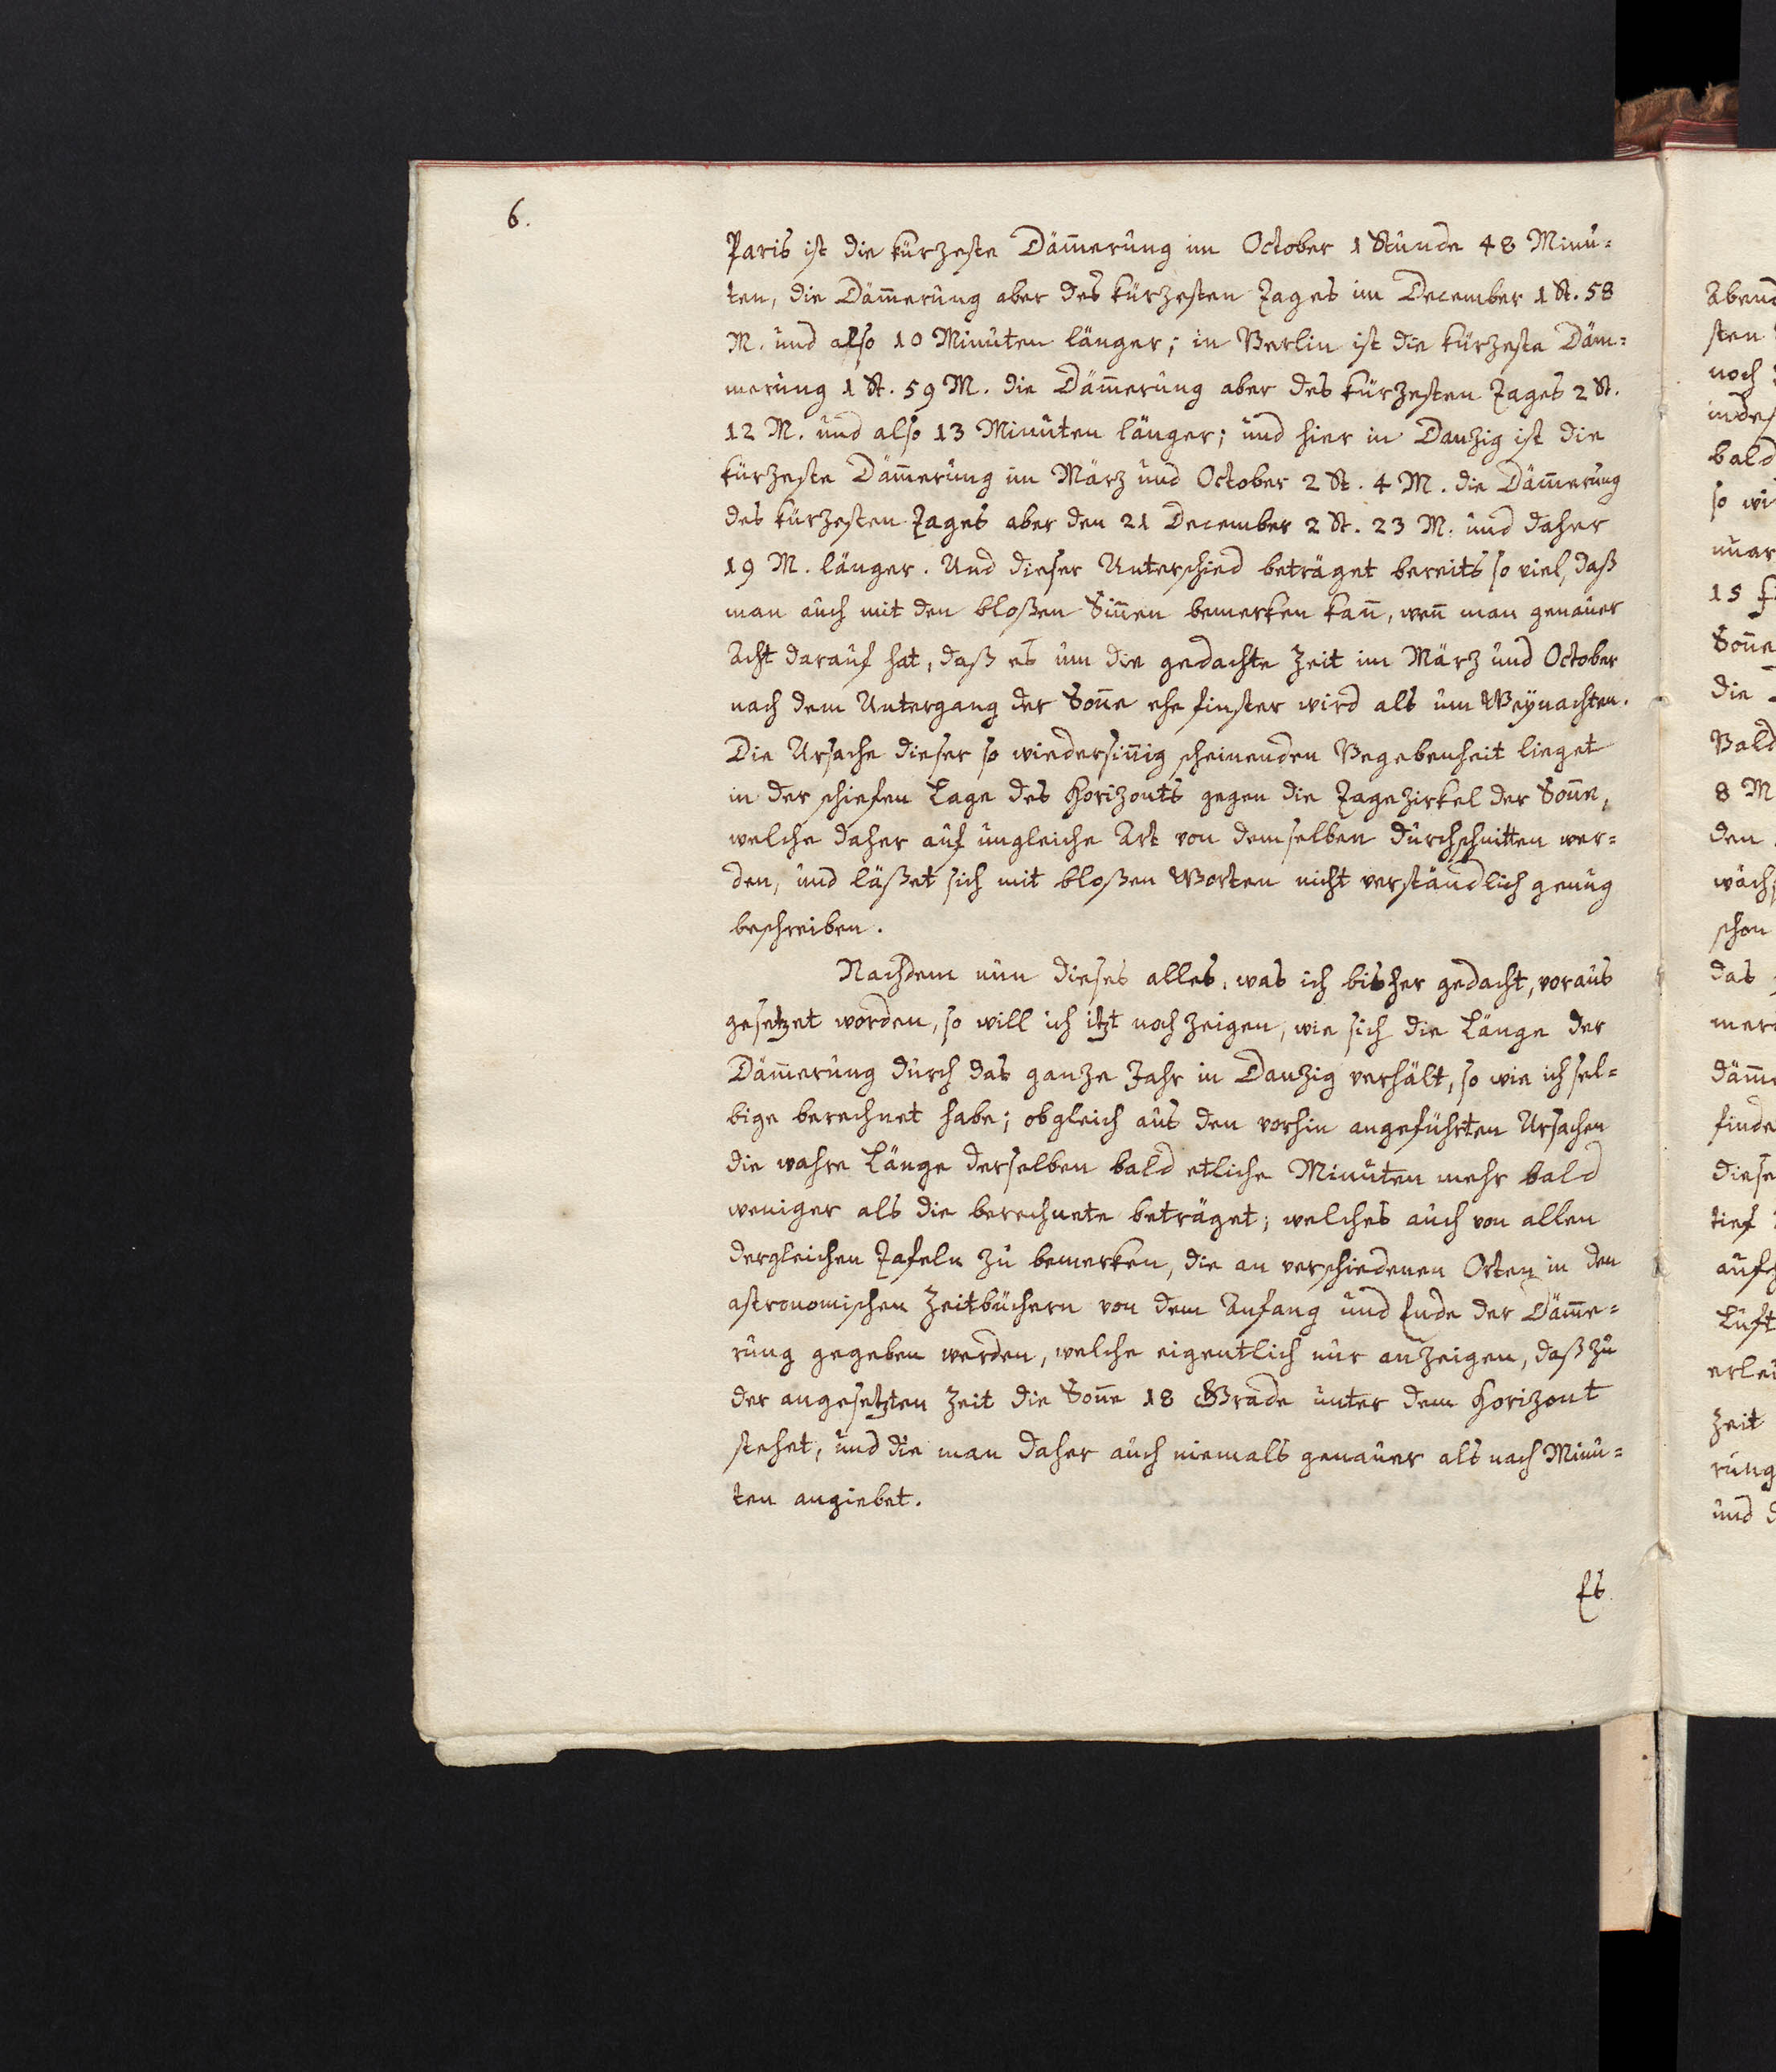 6.
Paris ist die kürzeste Däm̅erung im October 1 Stunde 48 Minu=
ten, die Däm̅erung aber des kürzesten Tages im December 1 St. 58
M. und also 10 Minuten länger; in Berlin ist die kürzeste Däm=
merung 1 St. 59 M. die Däm̅erung aber des kürzesten Tages 2 St.
12 M. und also 13 Minuten länger; und hier in Danzig ist die
kürzeste Däm̅erung im März und October 2 St. 4 M. die Däm̅erung
des kürzesten Tages aber den 21 December 2 St. 23 M. und daher
19 M. länger. Und dieser Unterschied beträget bereits so viel, daß
man auch mit den bloßen Sin̅en bemerken kan̅, wen̅ man genauer
Acht darauf hat, daß es um die gedachte Zeit im März und October
nach dem Untergang der Son̅e ehe finster wird als um Weÿnachten.
Die Ursache dieser so wiedersin̅ig scheinenden Begebenheit lieget
in der schiefen Lage des Horizonts gegen die Tagezirkel der Son̅e,
welche daher auf ungleiche Art von demselben durchschnitten wer=
den, und läßet sich mit bloßen Worten nicht verständlich genug
beschreiben.
Nachdem nun dieses alles, was ich bisher gedacht, voraus
gesetzet worden, so will ich itzt noch zeigen, wie sich die Länge der
Däm̅erung durch das ganze Jahr in Danzig verhält, so wie ich sel=
bige berechnet habe; obgleich aus den vorhin angeführten Ursachen
die wahre Länge derselben bald etliche Minuten mehr bald
weniger als die berechnete beträget; welches auch von allen
dergleichen Tafeln zu bemerken, die an verschiedenen Orten in den
astronomischen Zeitbüchern von dem Anfang und Ende der Däm̅e=
rung gegeben werden, welche eigentlich nur anzeigen, daß zu
der angesetzten Zeit die Son̅e 18 Grade unter dem Horizont
stehet, und die man daher auch niemals genauer als nach Minu=
ten angiebet.
Es
Abend
sten
noch
indes
bald
so wi
nuar
15
Son̅e
die
Bald
8 M
den
wächs
schon
das
mer
däm̅e
finde
diese
tief
aufg
Luft
erlei
Zeit
rung
und d